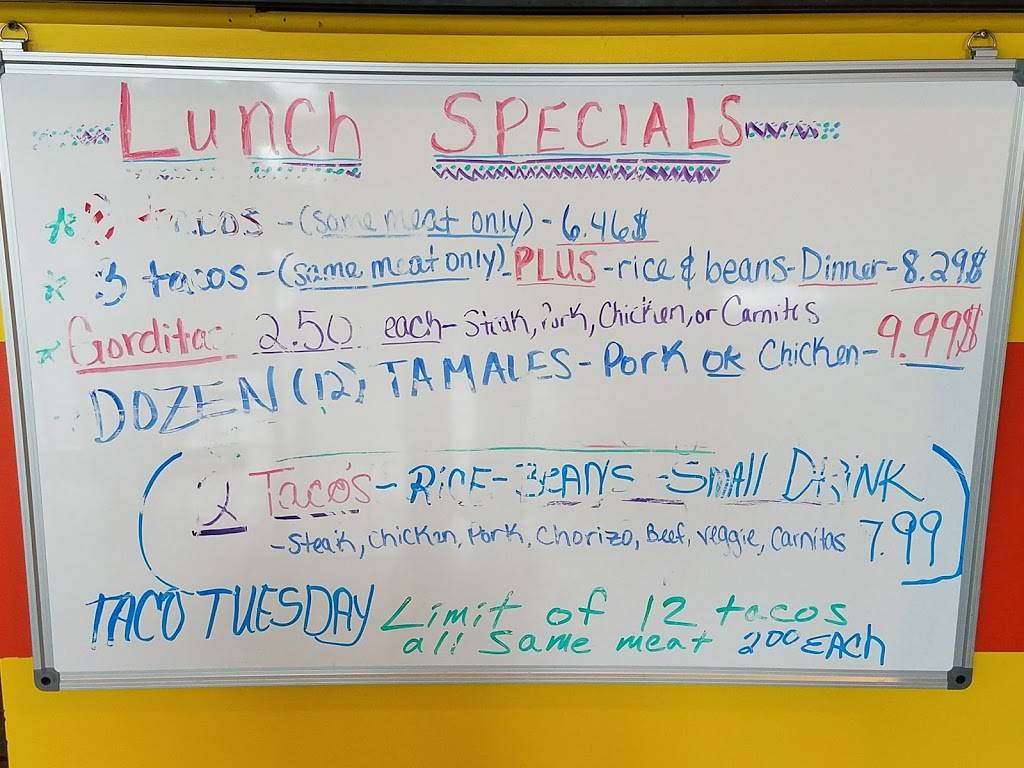 Lunch SPECIALS
3 tacos - (same meat only) - 6.46$
3 tacos - (same meat only) - PLUS - rice & beans - Dinner - 8.29$
Gorditas 2.50 each - Steak, Pork, Chicken, or Carnitas
DOZEN (12) TAMALES - Pork OR Chicken - 9.99$
2 Tacos - RICE - BEANS - Small DRINK
- Steak, Chicken, Pork, Chorizo, Beef, Veggie, Carnitas 7.99
TACO TUESDAY Limit of 12 tacos
all same meat 200 EACH